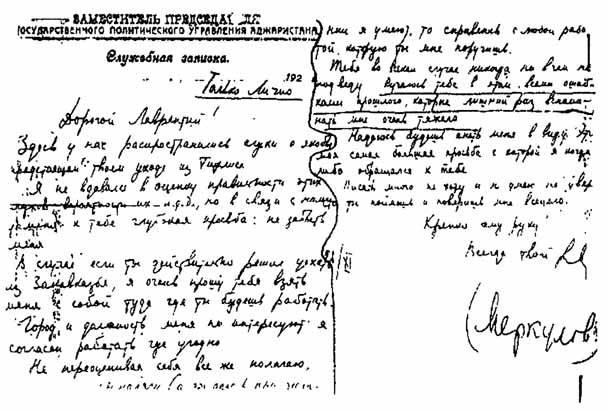 ЗАМЕСТИТЕЛЬ ПРЕДСЕДАТЕЛЯ
ГОСУДАРСТВЕННОГО ПОЛИТИЧЕСКОГО УПРАВЛЕНИЯ АДЖАРИСТАНА
Служебная записка.
192
Только Лично
Дорогой Лаврентий!
Здесь у нас распространились слухи о якобы
предстоящем твоем уходе из Тифлиса
Я не вдаваясь в оценку правильности этих
слухов вероятности их и.т.д., но в связи с ними
к тебе глубокая просьба: не забыть
меня
В случае если ты действительно решил уехать
из Закавказья, я очень прошу тебя взять
меня с собой туда где ты будешь работать.
Город и должность меня не интересуют я
согласен работать где угодно
Не переоценивая себя все же полагаю,
я умею), то справлюсь с любой рабо
той которую ты мне поручишь.
Тебя во всяком случае никогда ни в чем не
подведу Ручаюсь тебе в этом всеми ошиб-
ками прошлого, которые лишний раз вспоми-
нать мне очень тяжело
Надеюсь будешь иметь меня в виду. Эт
моя самая большая просьба с которой я когда
либо обращался к тебе
Писать много не хочу и я думаю не увер
ты поймешь и поверишь мне вполне.
Крепко жму руку
Всегда твой
(Меркулов)